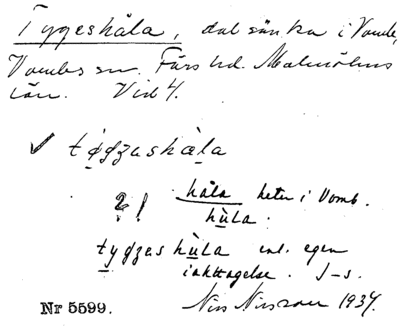 Tygeshåla, dalsänka i Vomb,
Vombs sn. Färs hd. Malmöhus
län. Vid 4.
✓ tø̣gzashạ̊la
?! håla heter i Vomb.
hụla.
tỵgzas hụla enl. egen
iakttagelse. J-s.
Nr 5599. Nils Nilsson 1937.